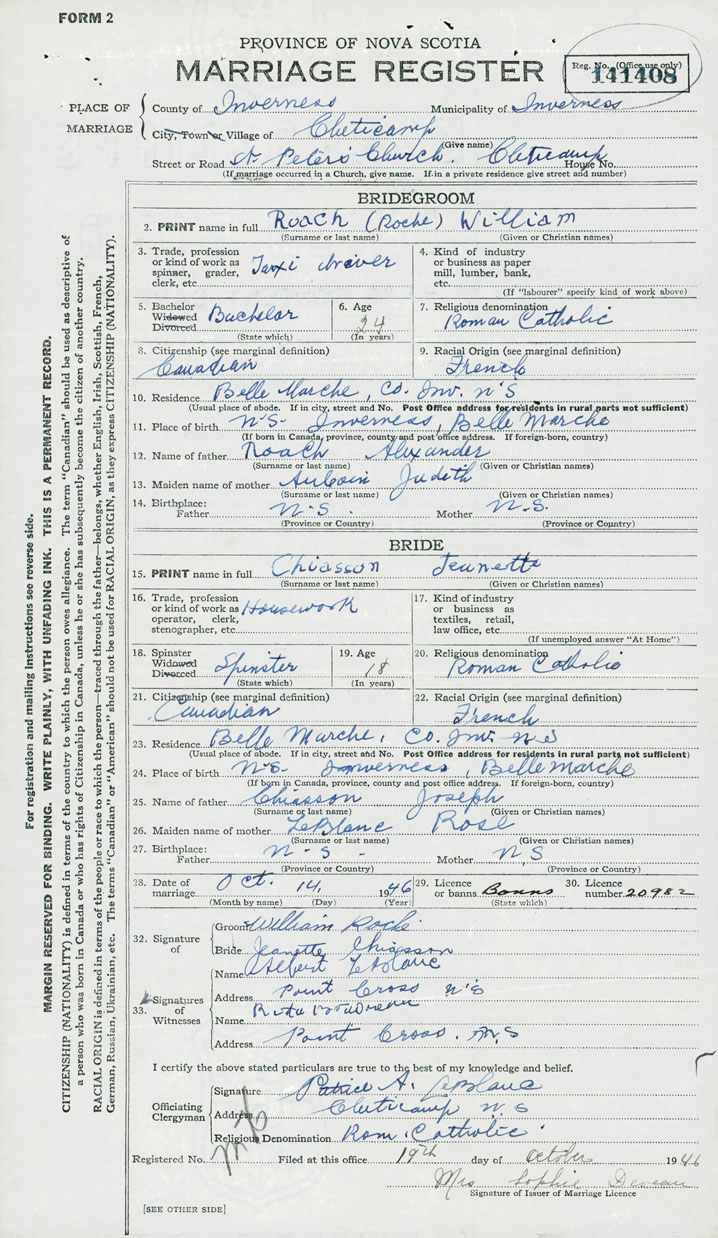 FORM 2
PROVINCE OF NOVA SCOTIA
MARRIAGE REGISTER
Reg. No. (Office use only)
141408
PLACE OF MARRIAGE
County of Inverness Municipality of Inverness
City, Town or Village of Cheticamp
(Give name)
Street or Road St Peter's Church. Cheticamp House No.
(If marriage occurred in a Church, give name. If in a private residence give street and number)
BRIDEGROOM
2. PRINT name in full Roach (Roche) William
(Surname or last name) (Given or Christian names)
3. Trade, profession or kind of work as spinner, grader, clerk, etc. Taxi driver
4. Kind of industry or business as paper mill, lumber, bank, etc.
(If "labourer" specify kind of work above)
5. Bachelor Widowed Divorced Bachelor
(State which)
6. Age 24
(In years)
7. Religious denomination Roman Catholic
8. Citizenship (see marginal definition) Canadian
9. Racial Origin (see marginal definition) French
10. Residence Belle Marche, Co. Inv. N'S
(Usual place of abode. If in city, street and No. Post Office address for residents in rural parts not sufficient)
11. Place of birth N'S- Inverness, Belle Marche
(If born in Canada, province, county and post office address. If foreign-born, country)
12. Name of father Roach Alexander
(Surname or last name) (Given or Christian names)
13. Maiden name of mother Aucoin Judith
(Surname or last name) (Given or Christian names)
14. Birthplace: Father N-S. Mother N.S.
(Province or Country) (Province or Country)
BRIDE
15. PRINT name in full Chiasson Jeunette
(Surname or last name) (Given or Christian names)
16. Trade, profession or kind of work as operator, clerk, stenographer, etc. Housework
17. Kind of industry or business as textiles, retail, law office, etc.
(If unemployed answer "At Home")
18. Spinster Widowed Divorced Spinster
(State which)
19. Age 18
(In years)
20. Religious denomination Roman Catholic
21. Citizenship (see marginal definition) Canadian
22. Racial Origin (see marginal definition) French
23. Residence Belle Marche, Co. Inv. N'S
(Usual place of abode. If in city, street and No. Post Office address for residents in rural parts not sufficient)
24. Place of birth N'S. Inverness, Belle Marche
(If born in Canada, province, county and post office address. If foreign-born, country)
25. Name of father Chiasson Joseph
(Surname or last name) (Given or Christian names)
26. Maiden name of mother LeBlanc Rose
(Surname or last name) (Given or Christian names)
27. Birthplace: Father N-S- Mother N.S
(Province or Country) (Province or Country)
28. Date of marriage Oct. 14, 1946
(Month by name) (Day) (Year)
29. Licence or banns Banns
(State which)
30. Licence number 20982
32. Signature of
Groom William Roche
Bride Jeanette Chiasson
33. Signatures of Witnesses
Name Albert LeBlanc
Address Point Cross N'S
Name Rita Boudreau
Address Point Cross. N.S
I certify the above stated particulars are true to the best of my knowledge and belief.
Officiating Clergyman
Signature Patrice A. LeBlanc
Address Cheticamp N.S
Religious Denomination Rom. Catholic
Registered No. Filed at this office 19th day of October 1946
Mrs Sophie Deveau
Signature of Issuer of Marriage Licence
[SEE OTHER SIDE]
For registration and mailing instructions see reverse side.
MARGIN RESERVED FOR BINDING. WRITE PLAINLY, WITH UNFADING INK. THIS IS A PERMANENT RECORD.
CITIZENSHIP (NATIONALITY) is defined in terms of the country to which the person owes allegiance. The term "Canadian" should be used as descriptive of
a person who was born in Canada or who has rights of Citizenship in Canada, unless he or she has subsequently become the citizen of another country.
RACIAL ORIGIN is defined in terms of the people or race to which the person—traced through the father—belongs, whether English, Irish, Scottish, French,
German, Russian, Ukrainian, etc. The terms "Canadian" or "American" should not be used for RACIAL ORIGIN, as they express CITIZENSHIP (NATIONALITY).